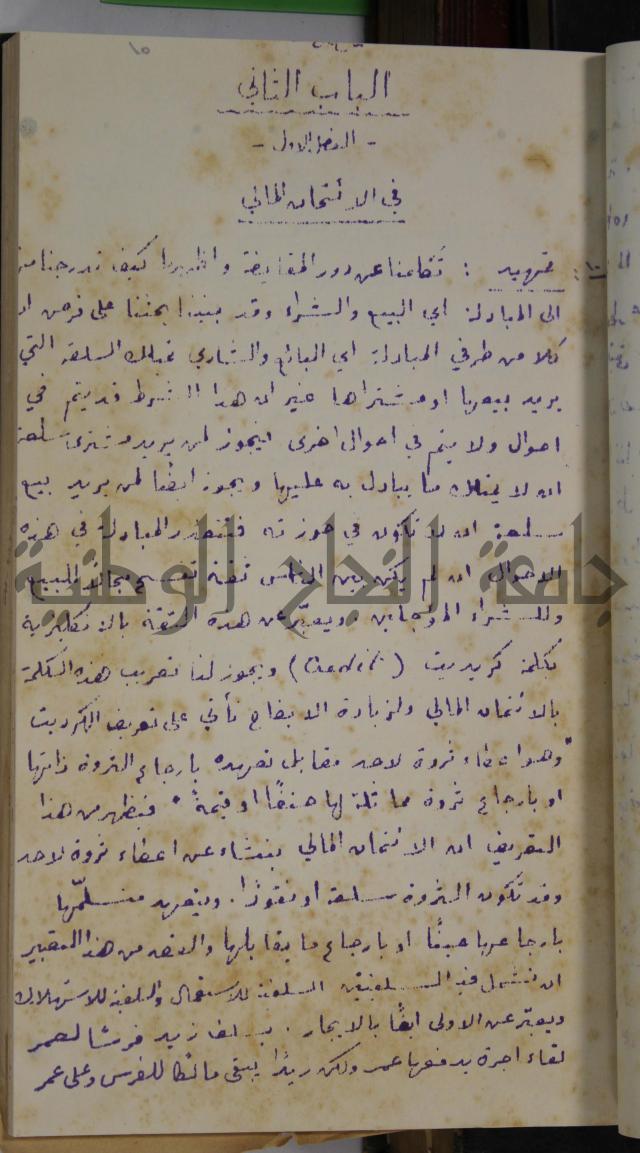 الباب الثاني
- الفصل الاول -
في الائتمان المالي
تمهيد : تكلمنا عن دور المقايضة واظهرنا كيف تدرجنا منه
الى المبادلة اي البيع والشراء وقد بنينا بحثنا على فرض ان
كلا من طرفي المبادلة اي البائع والشاري يملك السلعة التي
يريد بيعها او مشتراها غير ان هذا الشرط قد يتم في
احوال ولا يتم في احوال اخرى فيجوز لمن يريد مشترى سلعة
ان لا يملك ما يبادل به عليها ويجوز ايضًا لمن يريد بيع
سلعة ان لا تكون في حوزته فتتعذر المبادلة في هذه
الاحوال ان لم يكن بين الناس ثقة تفسح مجالًا للبيع
وللشراء المؤجلين. ويعبّر عن هذه الثقة بالانكليزية
بكلمة كريديت (Credit) ويجوز لنا تعريب هذه الكلمة
بالائتمان المالي ولزيادة الايضاح نأتي على تعريف الكرديت
"وهو اعطاء ثروة لاحد مقابل تعهده بارجاع الثروة ذاتها
او بارجاع ثروة مماثلة لها صنفًا او قيمةً" فيظهر من هذا
التعريف ان الائتمان المالي ينشاء عن اعطاء ثروة لاحد
وقد تكون الثروة سلعة او نقودًا. ويتعهد متسلّمها
بارجاعها عينًا او بارجاع ما يقابلها والقصد من هذا التعبير
ان نشمل فيه السلفتين السلفة للاستعمال والسلفة للاستهلاك
ويعبّر عن الاولى ايضًا بالايجار. يسلف زيد فرسًا لعمر
لقاء اجرة يدفعها عمر ولكن زيدًا يبقى مالكًا للفرس وعلى عمر
جامعة النجاح الوطنية